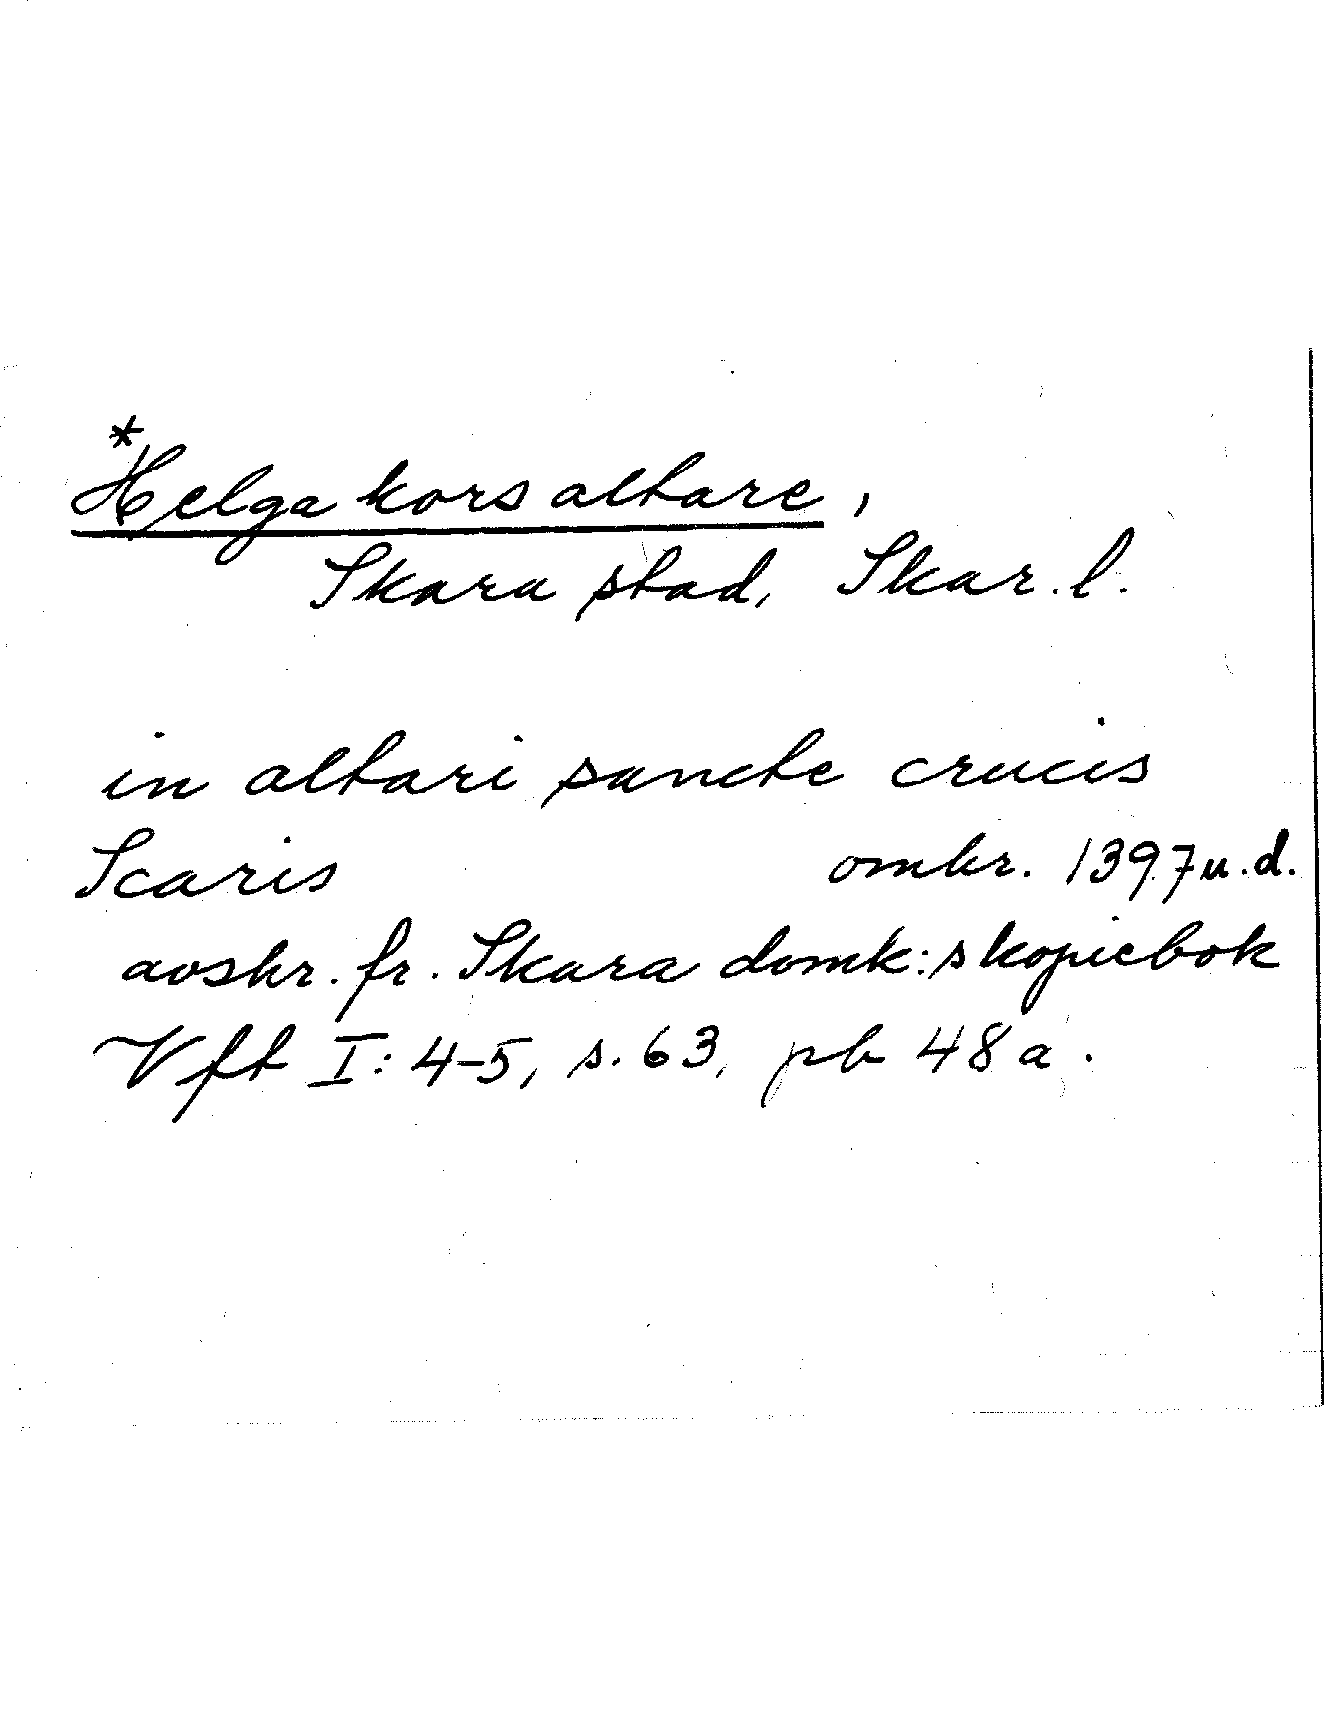 *Helga kors altare,
Skara stad, Skar. l.
in altari sancte crucis
Scaris omkr. 1397 u.d.
avskr. fr. Skara domk:s kopiebok
Vft I: 4-5, s. 63, pb 48 a.